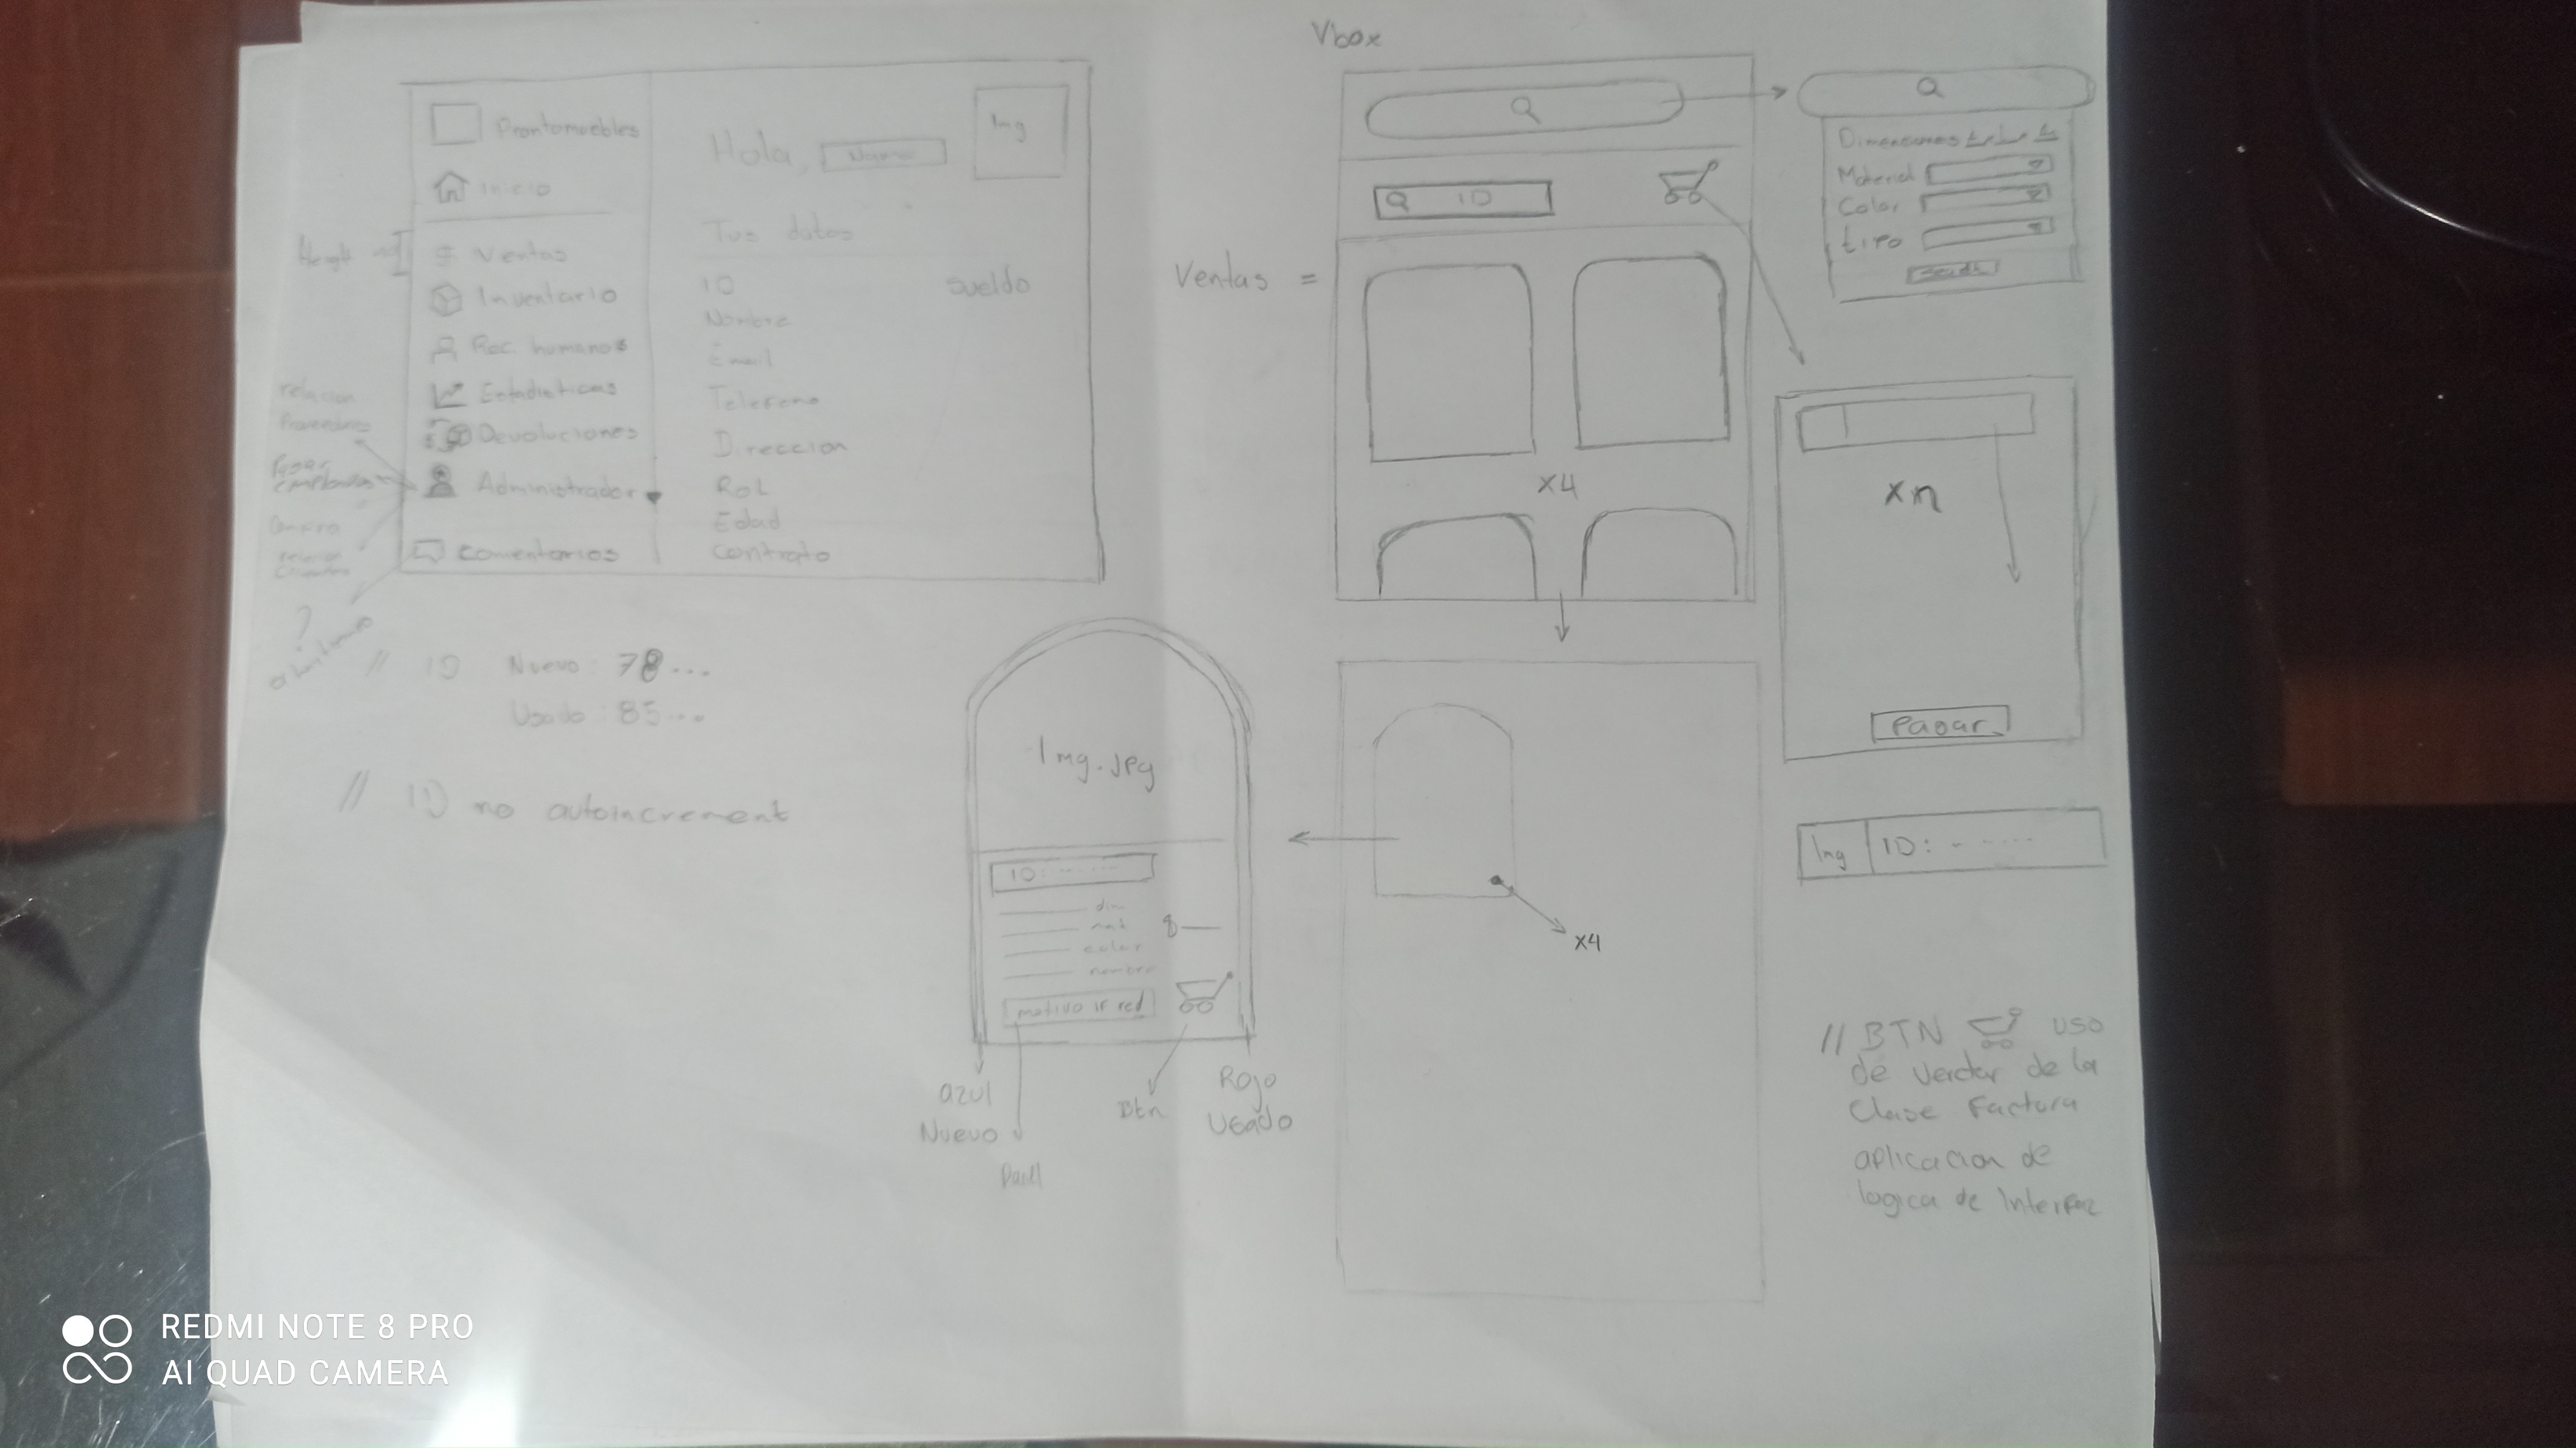 Prontomuebles
Inicio
Ventas
Inventario
Rec. humanos
Estadisticas
Devoluciones
Administrador
Comentarios
Height
relacion
Hola, Name
Img
Tus datos
ID
sueldo
Nombre
Email
Telefono
Direccion
Rol
Edad
Contrato
?
// ID Nuevo: 78...
Usado: 85...
// ID no autoincrement
Vbox
Ventas =
ID
x4
Dimensiones
Material
Color
tipo
xn
Pagar
Img ID: - - ----
Img.jpg
ID: -- ----
dim
mat
color
nombre
$
motivo if red
azul
Nuevo
Btn
Rojo
Usado
x4
// BTN uso
de vender de la
Clase Factura
aplicacion de
logica de Interfaz
REDMI NOTE 8 PRO
AI QUAD CAMERA